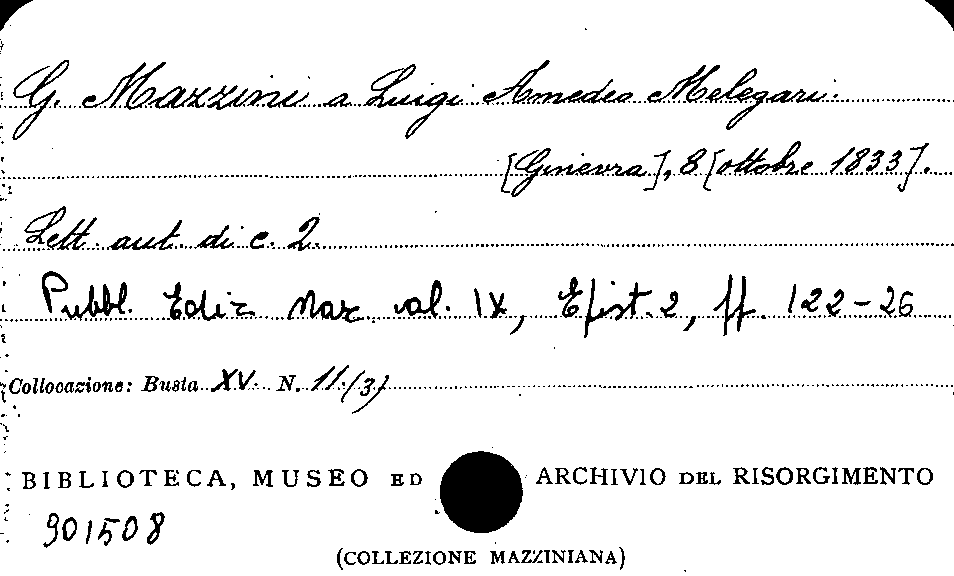 G. Mazzini a Luigi Amedeo Melegari.
[Ginevra], 8 [ottobre 1833].
Lett. aut. di c. 2.
Pubbl. Ediz. Naz. vol. IX, Epist. 2, pp. 122-26
Collocazione: Busta XV. N. 11/(3)
BIBLIOTECA, MUSEO ED ARCHIVIO DEL RISORGIMENTO
901508
(COLLEZIONE MAZZINIANA)